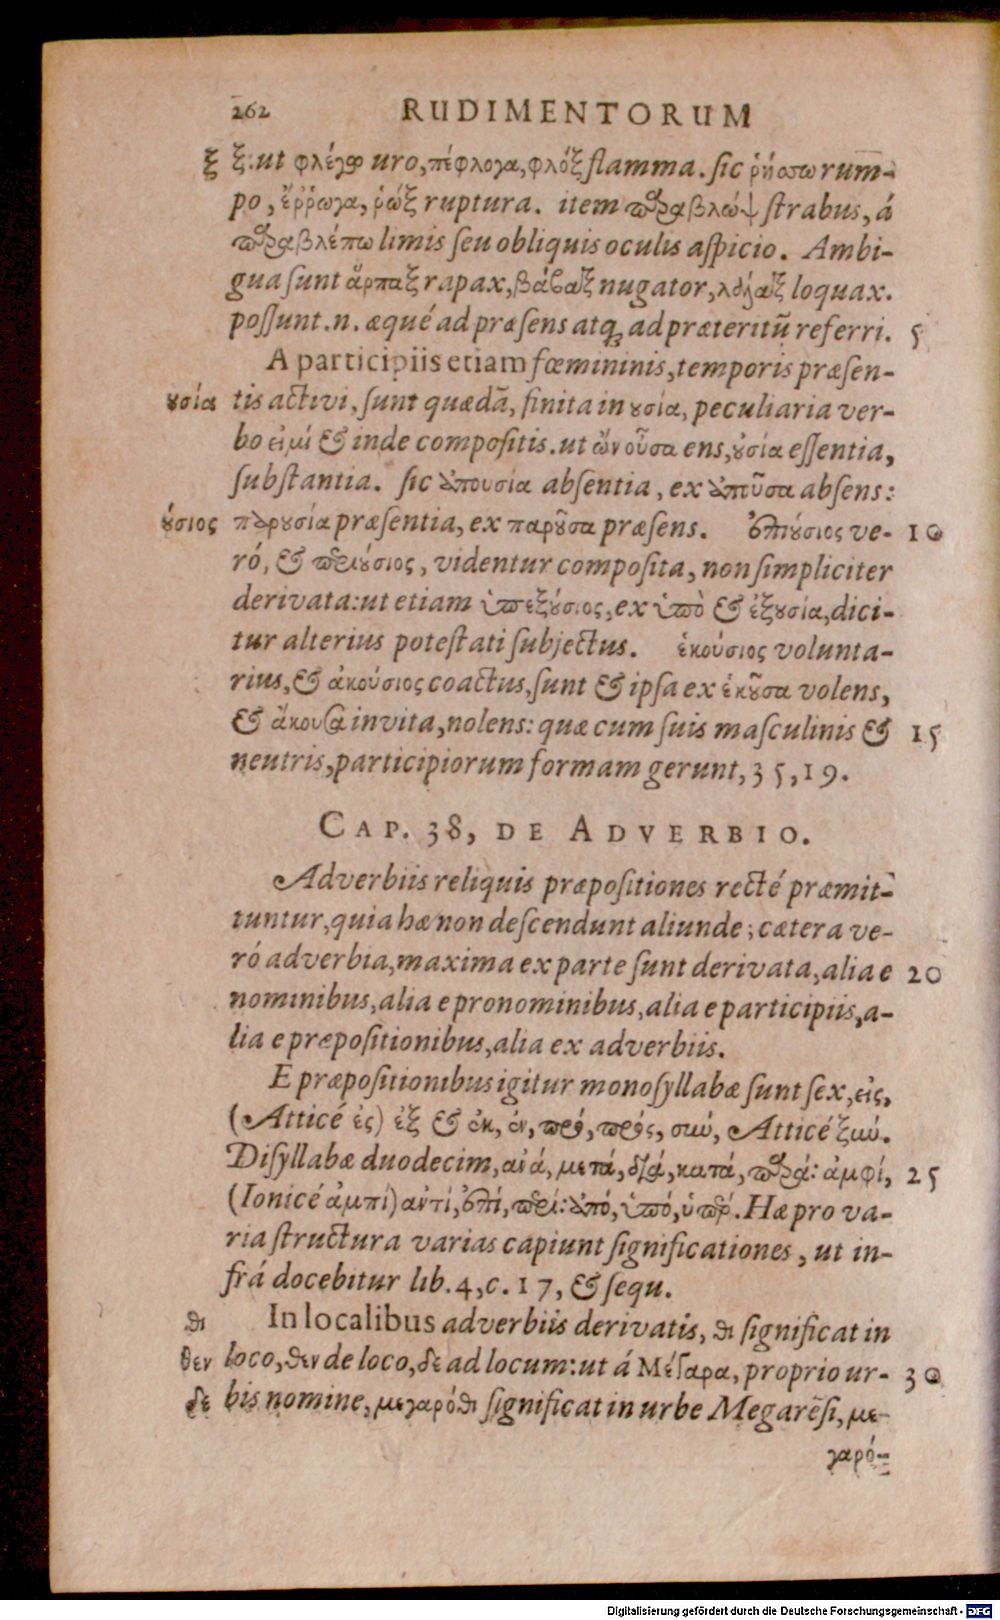 262 RUDIMENTORUM
ξ ξ: ut φλέγω uro, πέφλογα, φλόξ flamma. sic ῥήσσω rum-
po, ἔῤῥωγα, ῥώξ ruptura. item παραβλώψ strabus, á
παραβλέπω limis seu obliquis oculis aspicio. Ambi-
gua sunt ἅρπαξ rapax, βάβαξ nugator, λάλαξ loquax.
possunt .n. æqué ad præsens atq; ad præteritũ referri. 5
A participiis etiam fœmininis, temporis præsen-
ȣσία tis activi, sunt quædã, finita in ȣσία, peculiaria ver-
bo εἰμί & inde compositis. ut ὤν οὖσα ens, ȣ̓σία essentia,
substantia. sic ἀπουσία absentia, ex ἀπȣ͂σα absens:
ȣ́σιος παρȣσία præsentia, ex παρȣ͂σα præsens. ἐπιȣ́σιος ve- 10
ró, & περιȣ́σιος, videntur composita, non simpliciter
derivata: ut etiam ὑπεξȣ́σιος, ex ὑπὸ & ἐξȣσία, dici-
tur alterius potestati subjectus. ἑκούσιος volunta-
rius, & ἀκούσιος coactus, sunt & ipsa ex ἑκȣ͂σα volens,
& ἄκουσα invita, nolens: quæ cum suis masculinis & 15
neutris, participiorum formam gerunt, 35, 19.
CAP. 38, DE ADVERBIO.
Adverbiis reliquis præpositiones recté præmit-
tuntur, quia hæ non descendunt aliunde; cætera ve-
ró adverbia, maxima ex parte sunt derivata, alia e 20
nominibus, alia e pronominibus, alia e participiis, a-
lia e præpositionibus, alia ex adverbiis.
E præpositionibus igitur monosyllabæ sunt sex, εἰς,
(Atticé ἐς) ἐξ & ἐκ, ἐν, πρό, πρός, σύν, Atticé ξύν.
Disyllabæ duodecim, ανά, μετά, διά, κατά, παρά: ἀμφί, 25
(Ionicé ἀμπί) αντί, ἐπί, περί: ἀπό, ὑπό, ὑπέρ. Hæ pro va-
ria structura varias capiunt significationes, ut in-
frá docebitur lib. 4, c. 17, & sequ.
θι In localibus adverbiis derivatis, θι significat in
θεν loco, θεν de loco, δε ad locum: ut á Μέγαρα, proprio ur- 30
δε bis nomine, μεγαρόθι significat in urbe Megarẽsi, με-
γαρό-
Digitalisierung gefördert durch die Deutsche Forschungsgemeinschaft - DFG